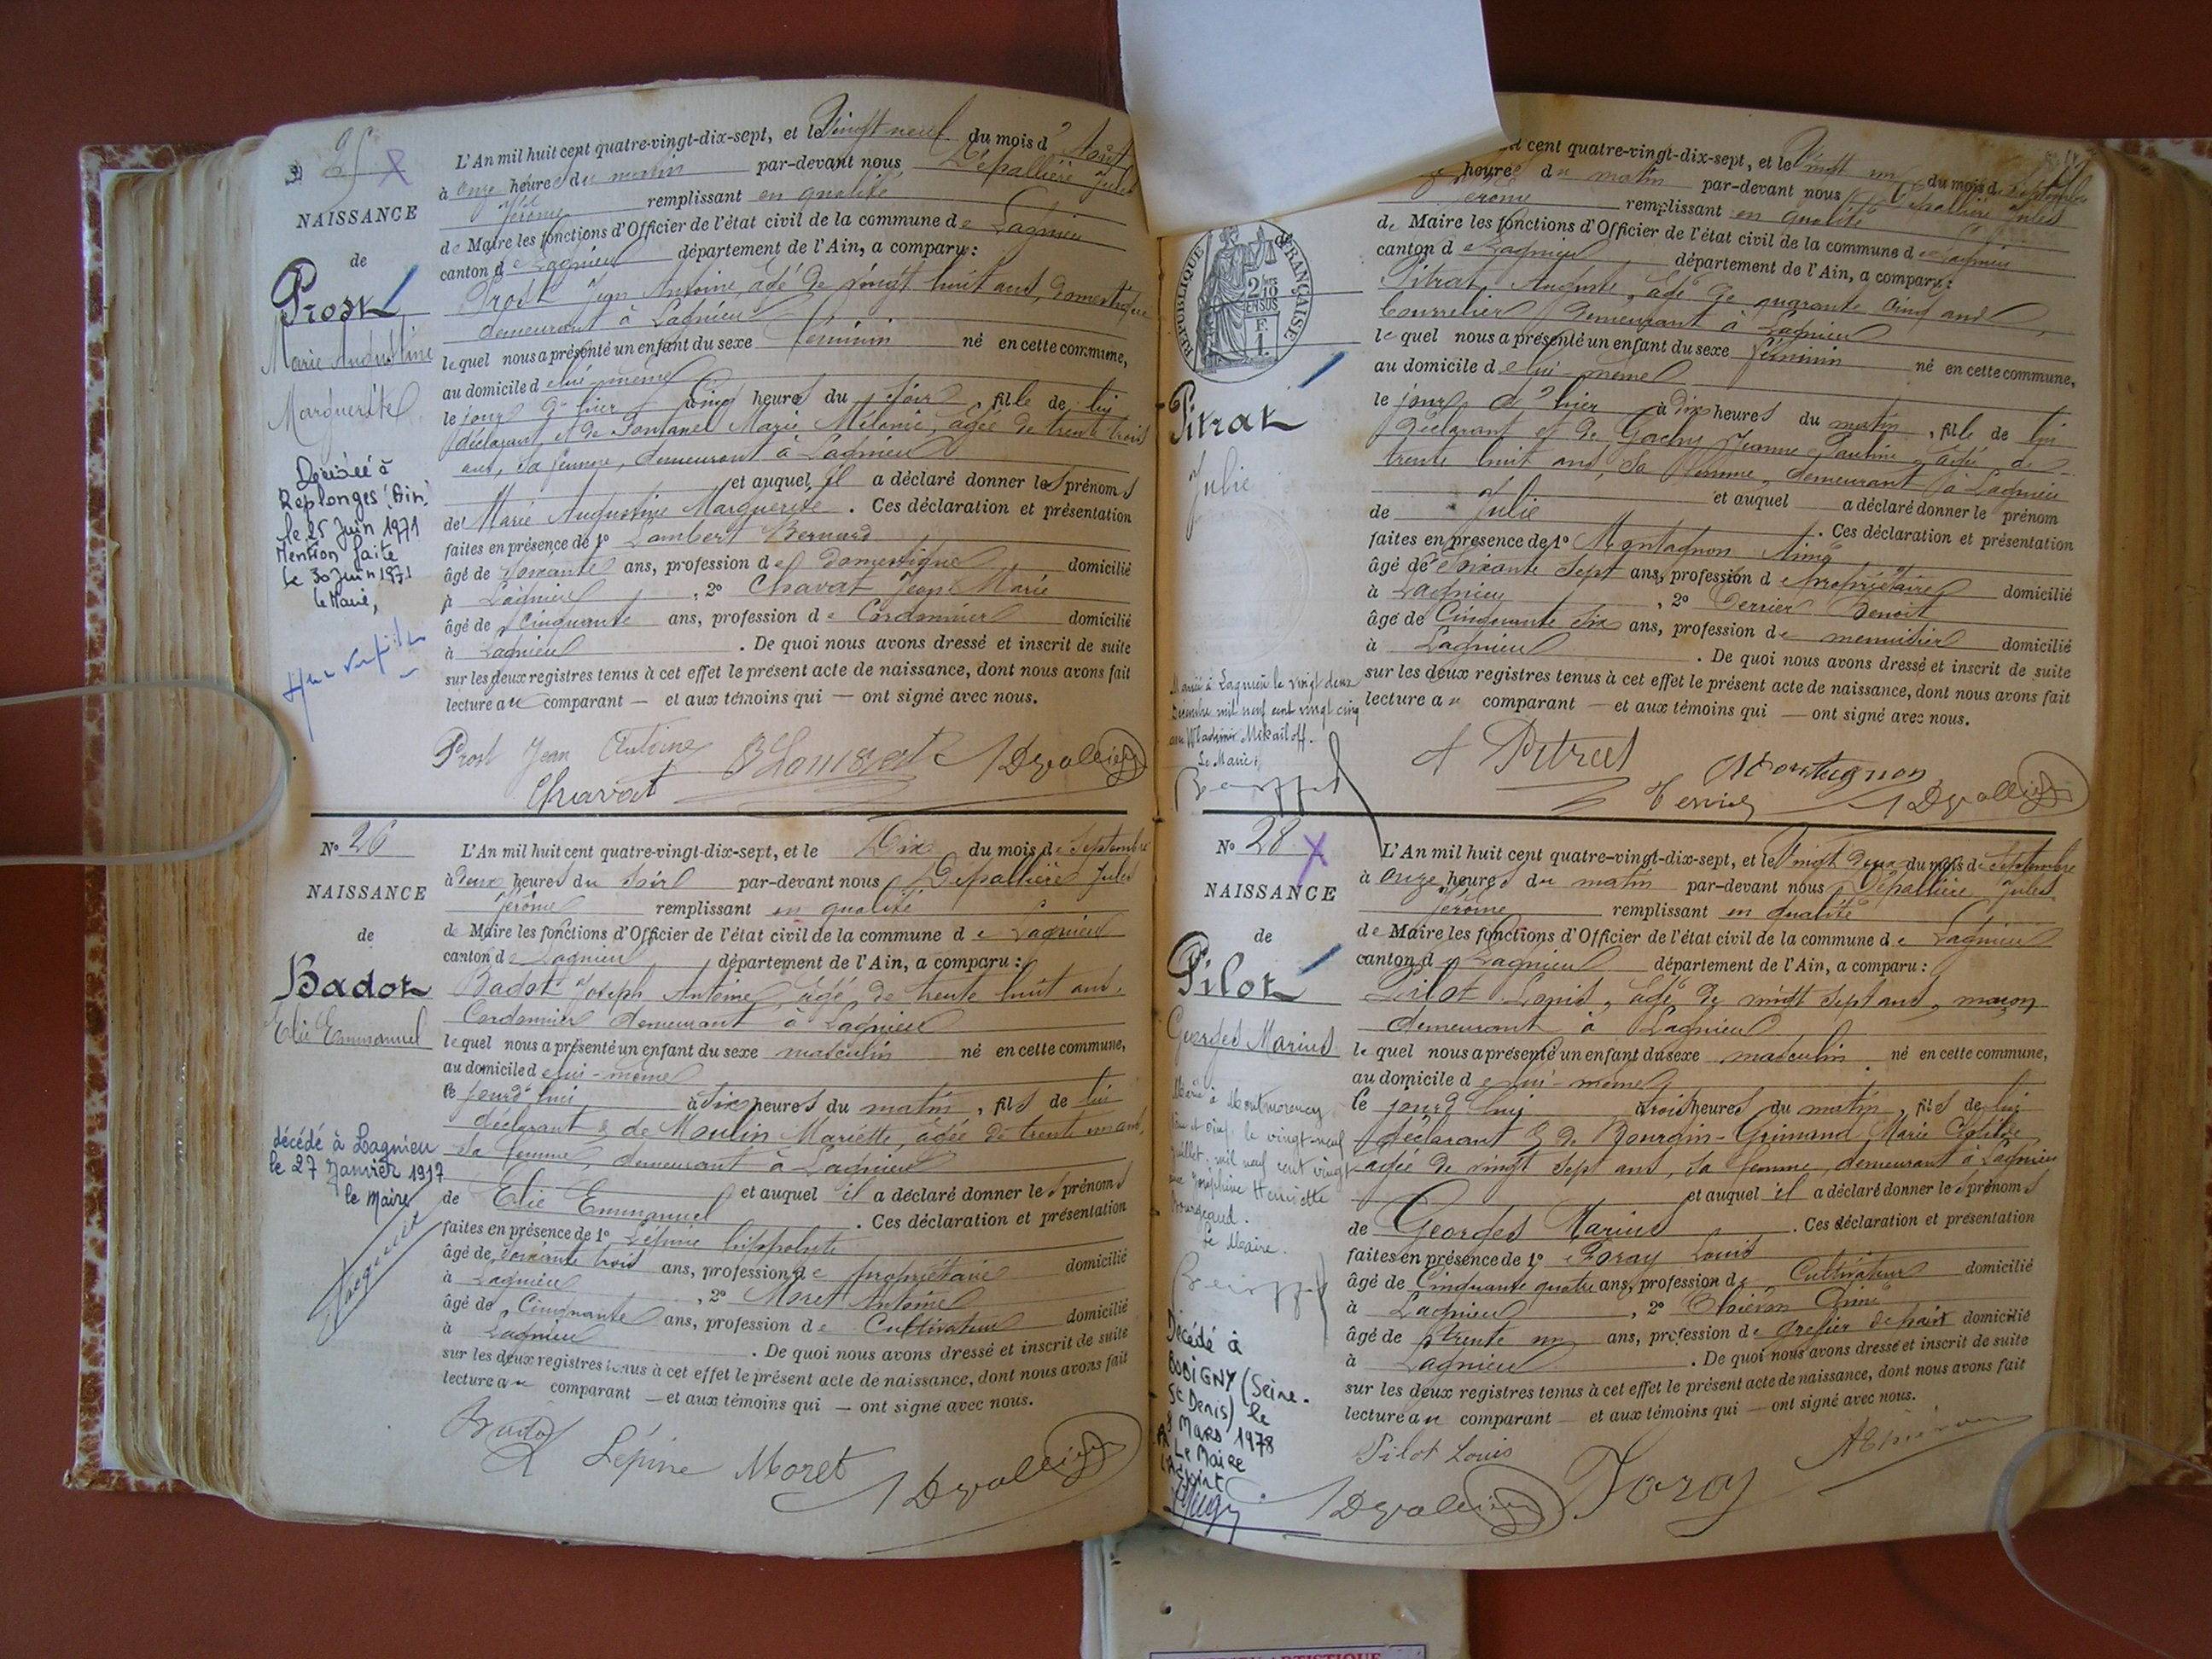 25
NAISSANCE
de
Prost
Marie Augustine
Marguerite
Décédée à
Replonges (Ain)
le 25 Juin 1971
Mention faite
le 30 Juin 1971
le Maire,
L'An mil huit cent quatre-vingt-dix-sept, et le Vingt neuf du mois d'Août
à onze heures du matin par-devant nous Dépallière Jules
Jérôme remplissant en qualité
de Maire les fonctions d'Officier de l'état civil de la commune de Lagnieu
canton de Lagnieu département de l'Ain, a comparu:
Prost Jean Antoine, âgé de vingt huit ans, domestique
demeurant à Lagnieu
lequel nous a présenté un enfant du sexe féminin né en cette commune,
au domicile de lui-même
le jour d'hier à cinq heures du soir, fille de lui
déclarant et de Fontanel Marie Mélanie, âgée de trente trois
ans, sa femme, demeurant à Lagnieu
et auquel il a déclaré donner les prénoms
de Marie Augustine Marguerite. Ces déclaration et présentation
faites en présence de 1º Lambert Bernard
âgé de soixante ans, profession de domestique domicilié
à Lagnieu, 2º Chavat Jean Marie
âgé de cinquante ans, profession de Cordonnier domicilié
à Lagnieu. De quoi nous avons dressé et inscrit de suite
sur les deux registres tenus à cet effet le présent acte de naissance, dont nous avons fait
lecture au comparant — et aux témoins qui — ont signé avec nous.
Prost Jean Antoine
Chavat
Nº 26
NAISSANCE
de
Badot
Elie Emmanuel
décédé à Lagnieu
le 27 Janvier 1917
le Maire
L'An mil huit cent quatre-vingt-dix-sept, et le Dix du mois de Septembre
à deux heures du soir par-devant nous Dépallière Jules
Jérôme remplissant en qualité
de Maire les fonctions d'Officier de l'état civil de la commune de Lagnieu
canton de Lagnieu département de l'Ain, a comparu:
Badot Joseph Antoine, âgé de trente huit ans,
Cordonnier demeurant à Lagnieu
lequel nous a présenté un enfant du sexe masculin né en cette commune,
au domicile de lui-même
le jourd'hui à six heures du matin, fils de lui
déclarant & de Moulin Mariette, âgée de trente un ans,
sa femme, demeurant à Lagnieu
et auquel il a déclaré donner les prénoms
de Elie Emmanuel. Ces déclaration et présentation
faites en présence de 1º Lépine hippolyte
âgé de soixante trois ans, profession de propriétaire domicilié
à Lagnieu, 2º Moret Antoine
âgé de Cinquante ans, profession de Cultivateur domicilié
à Lagnieu. De quoi nous avons dressé et inscrit de suite
sur les deux registres tenus à cet effet le présent acte de naissance, dont nous avons fait
lecture au comparant — et aux témoins qui — ont signé avec nous.
Badot Lépine Moret
RÉPUBLIQUE FRANÇAISE
Pitrat
Julie
Marié à Lagnieu le vingt deux
Décembre mil neuf cent vingt cinq
avec Wladimir Mikaïloff.
Le Maire,
cent quatre-vingt-dix-sept, et le Vingt un du mois de Septembre
heures du matin par-devant nous Dépallière Jules
Jérôme remplissant en qualité
de Maire les fonctions d'Officier de l'état civil de la commune de Lagnieu
canton de Lagnieu département de l'Ain, a comparu:
Pitrat Auguste, âgé de quarante cinq ans,
bourrelier demeurant à Lagnieu
lequel nous a présenté un enfant du sexe féminin né en cette commune,
au domicile de lui-même
le jour d'hier à dix heures du matin, fille de lui
déclarant et de Jeanne Pauline, âgée de
trente huit ans, sa femme, demeurant à Lagnieu
et auquel a déclaré donner le prénom
de Julie. Ces déclaration et présentation
faites en présence de 1º Montagnon Aimé
âgé de Soixante sept ans, profession de propriétaire domicilié
à Lagnieu, 2º Perrier Benoît
âgé de Cinquante six ans, profession de menuisier domicilié
à Lagnieu. De quoi nous avons dressé et inscrit de suite
sur les deux registres tenus à cet effet le présent acte de naissance, dont nous avons fait
lecture au comparant — et aux témoins qui — ont signé avec nous.
A Pitrat Montagnon
Nº 28
NAISSANCE
de
Pilot
Georges Marius
Marié à Montmorency
le vingt-neuf
Juillet mil neuf cent vingt
avec Joséphine Henriette
le Maire.
Décédé à
BOBIGNY (Seine-
St Denis) le
8 Mars 1978
Le Maire
L'Adjoint
L'An mil huit cent quatre-vingt-dix-sept, et le Vingt deux du mois de Septembre
à onze heures du matin par-devant nous Dépallière Jules
Jérôme remplissant en qualité
de Maire les fonctions d'Officier de l'état civil de la commune de Lagnieu
canton de Lagnieu département de l'Ain, a comparu:
Pilot Louis, âgé de vingt sept ans, maçon
demeurant à Lagnieu
lequel nous a présenté un enfant du sexe masculin né en cette commune,
au domicile de lui-même
le jourd'hui à trois heures du matin, fils de lui
déclarant & de Bourgin-Grimaud Marie
âgée de vingt sept ans, sa femme, demeurant à Lagnieu
et auquel il a déclaré donner les prénoms
de Georges Marius. Ces déclaration et présentation
faites en présence de 1º Foray Louis
âgé de Cinquante quatre ans, profession de Cultivateur domicilié
à Lagnieu, 2º
âgé de trente un ans, profession de greffier de paix domicilié
à Lagnieu. De quoi nous avons dressé et inscrit de suite
sur les deux registres tenus à cet effet le présent acte de naissance, dont nous avons fait
lecture au comparant — et aux témoins qui — ont signé avec nous.
Pilot Louis
Foray